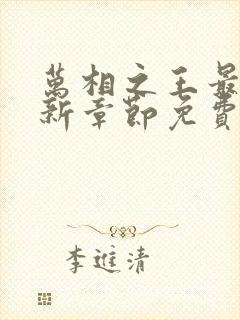 萬相之王最
新章節免費
李進清